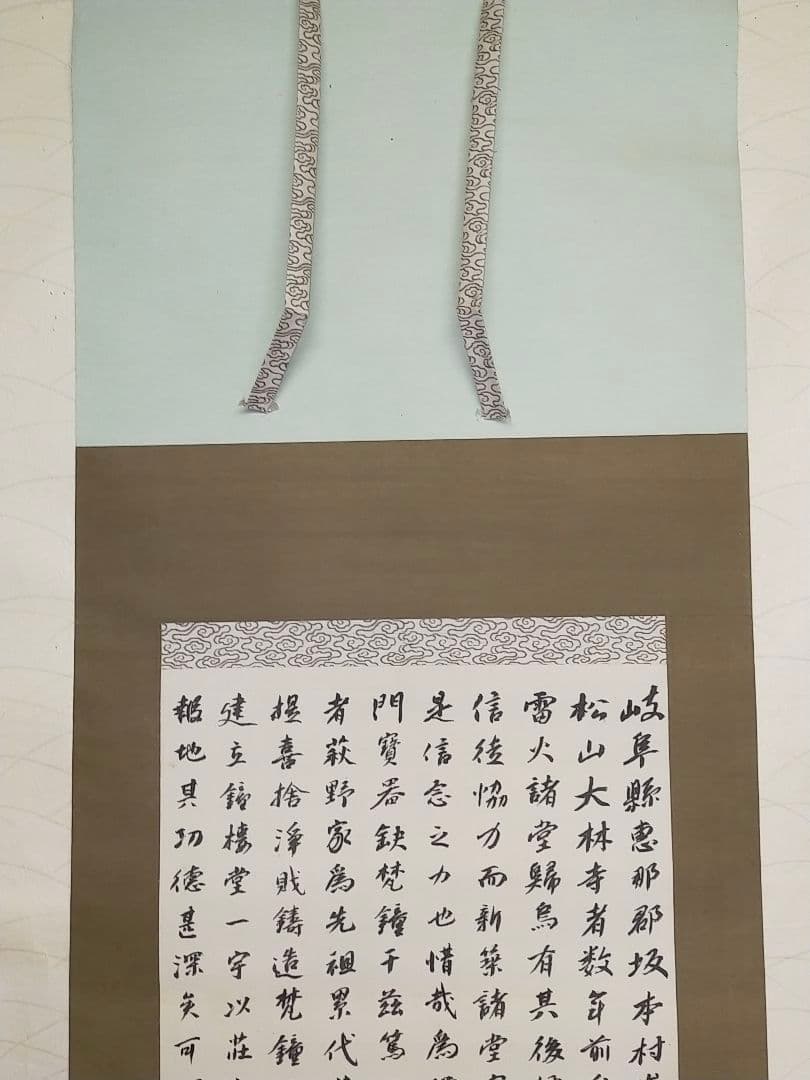 岐阜縣惠那郡坂本村
松山大林寺者数年前
雷火諸堂歸烏有其後
信徒恊力而新築諸堂
是信念之力也惜哉爲
門寶器缺梵鐘于茲篤
者萩野家爲先祖累代
提喜捨淨財鑄造梵鐘
建立鐘樓堂一宇以莊
報地其功德甚深矣可